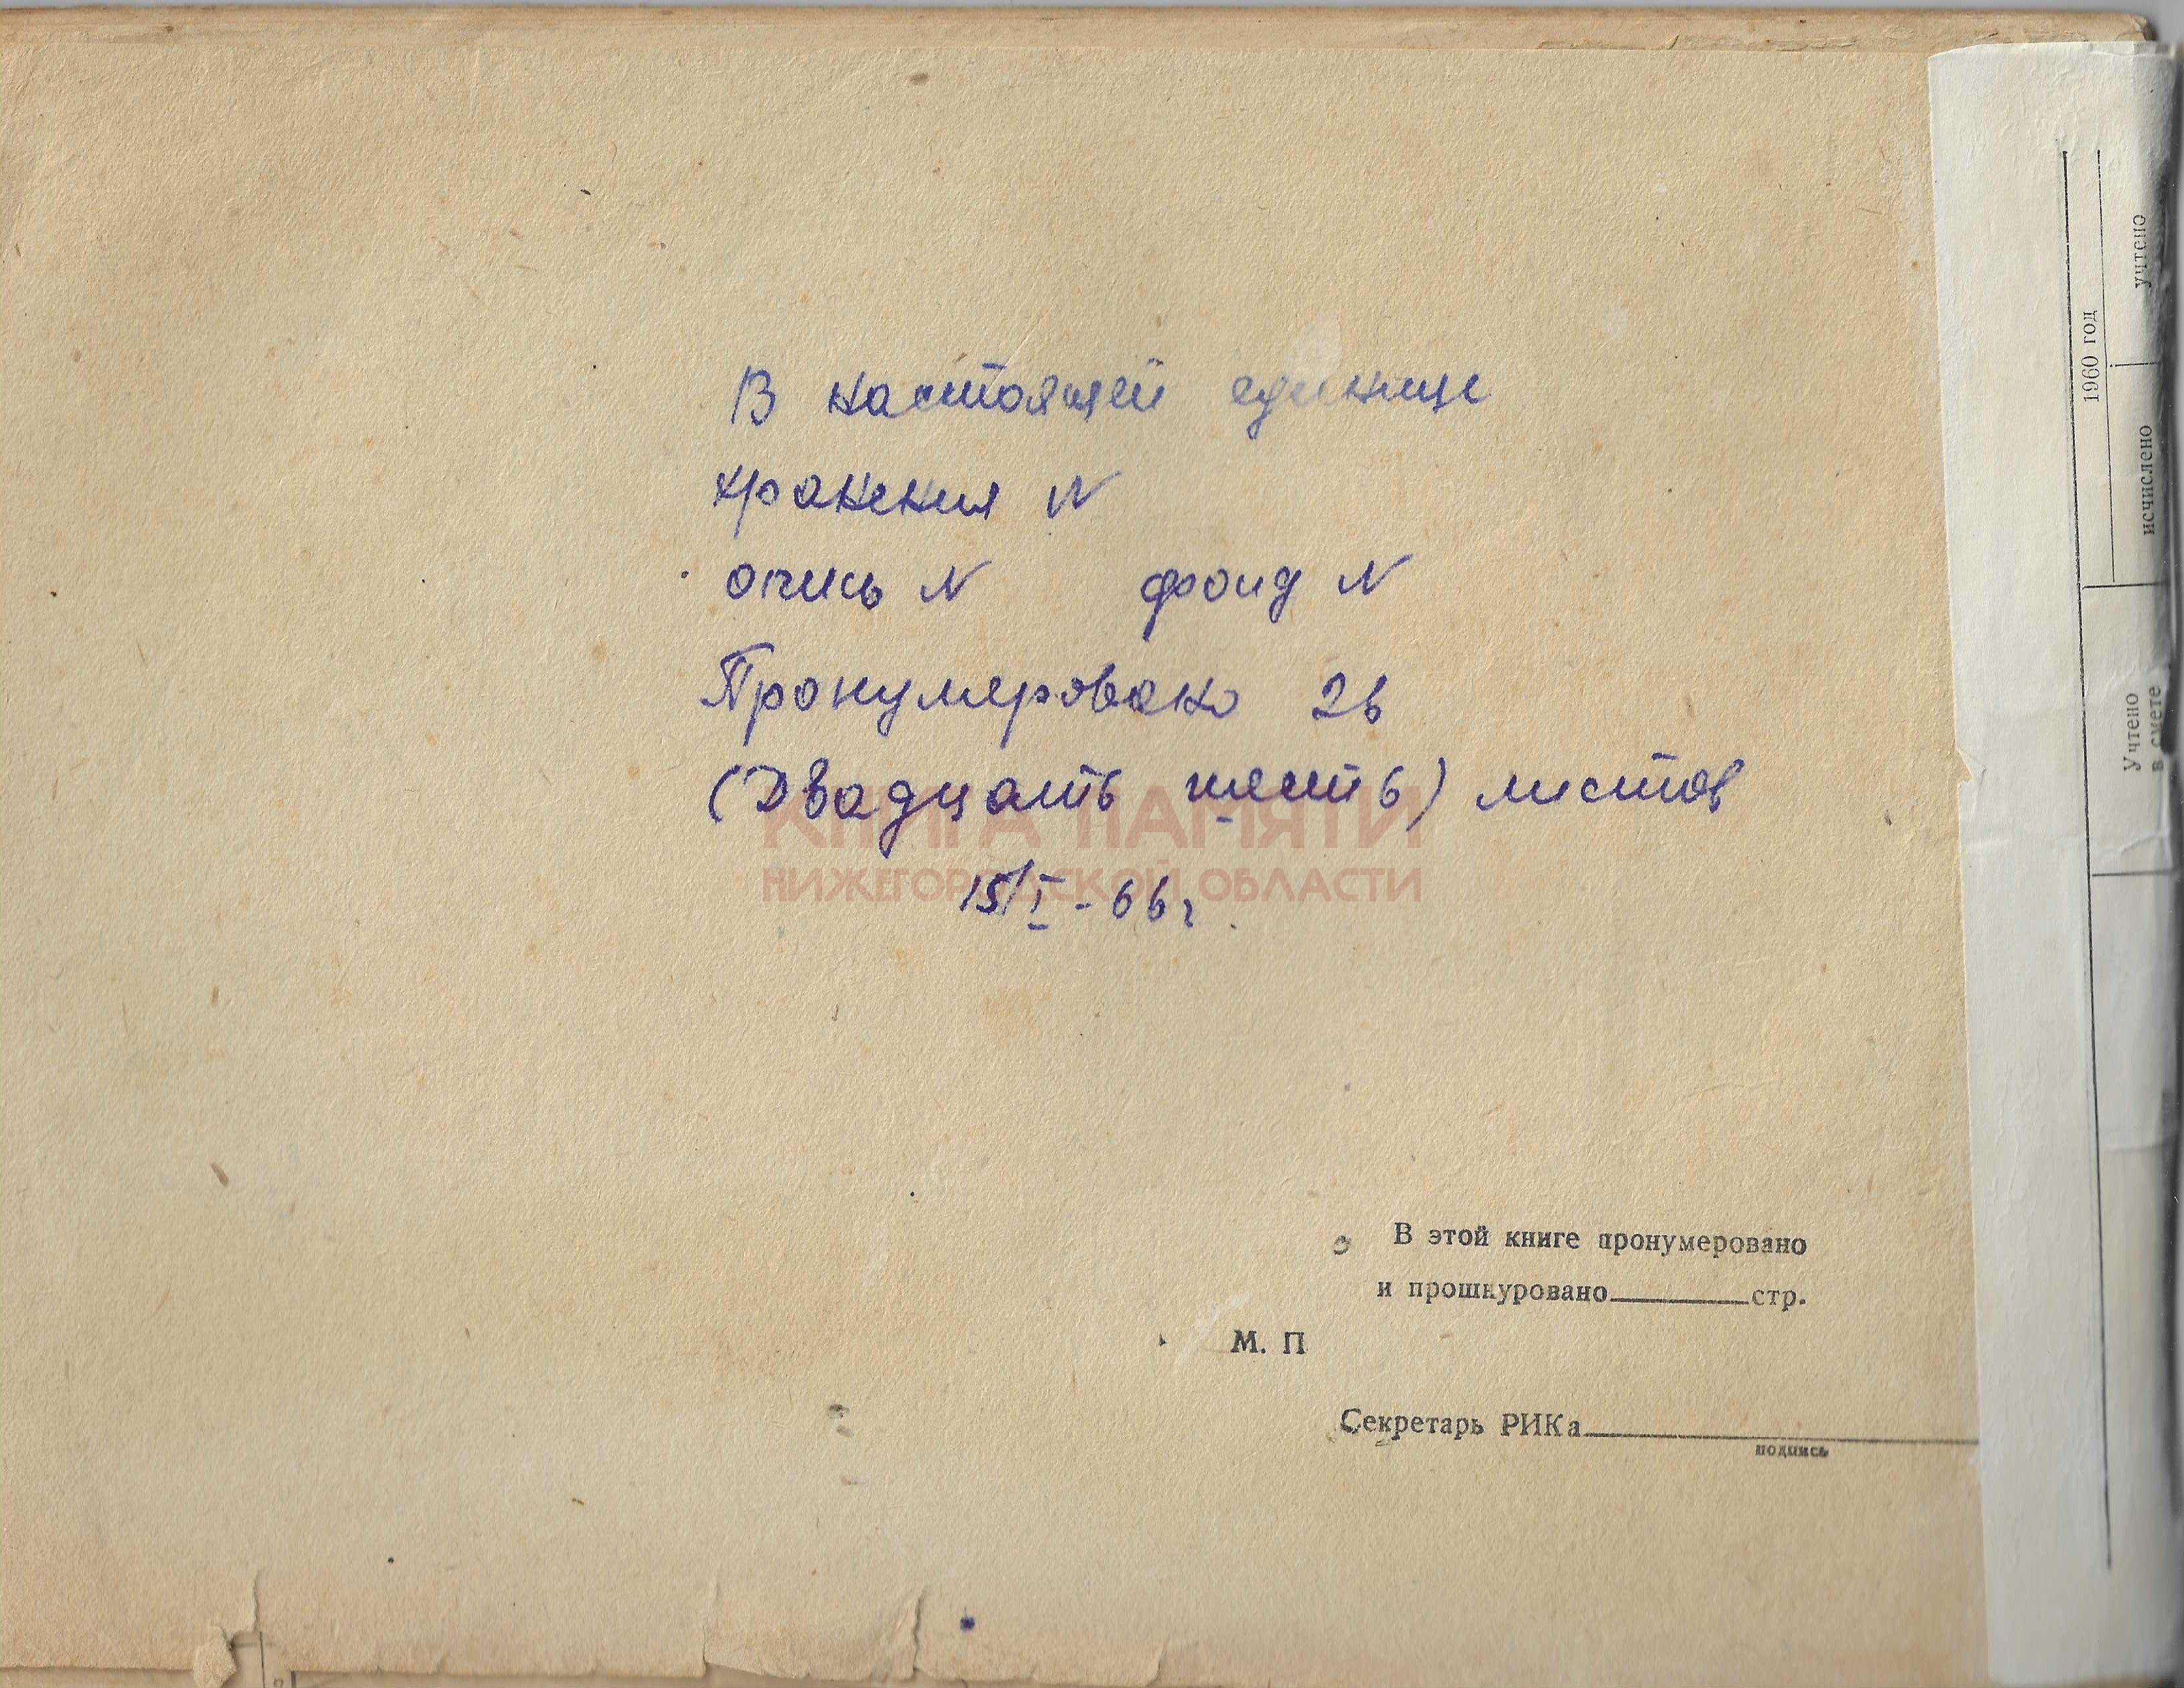 В настоящей единице
хранения N
опись N фонд N
Пронумеровано 26
(Двадцать шесть) листов
КНИГА ПАМЯТИ
НИЖЕГОРОДСКОЙ ОБЛАСТИ
15/I - 66 г
В этой книге пронумеровано
и прошнуровано________стр.
М. П
Секретарь РИКа________
подпись
1960 год
учтено
исчислено
Учтено
в смете